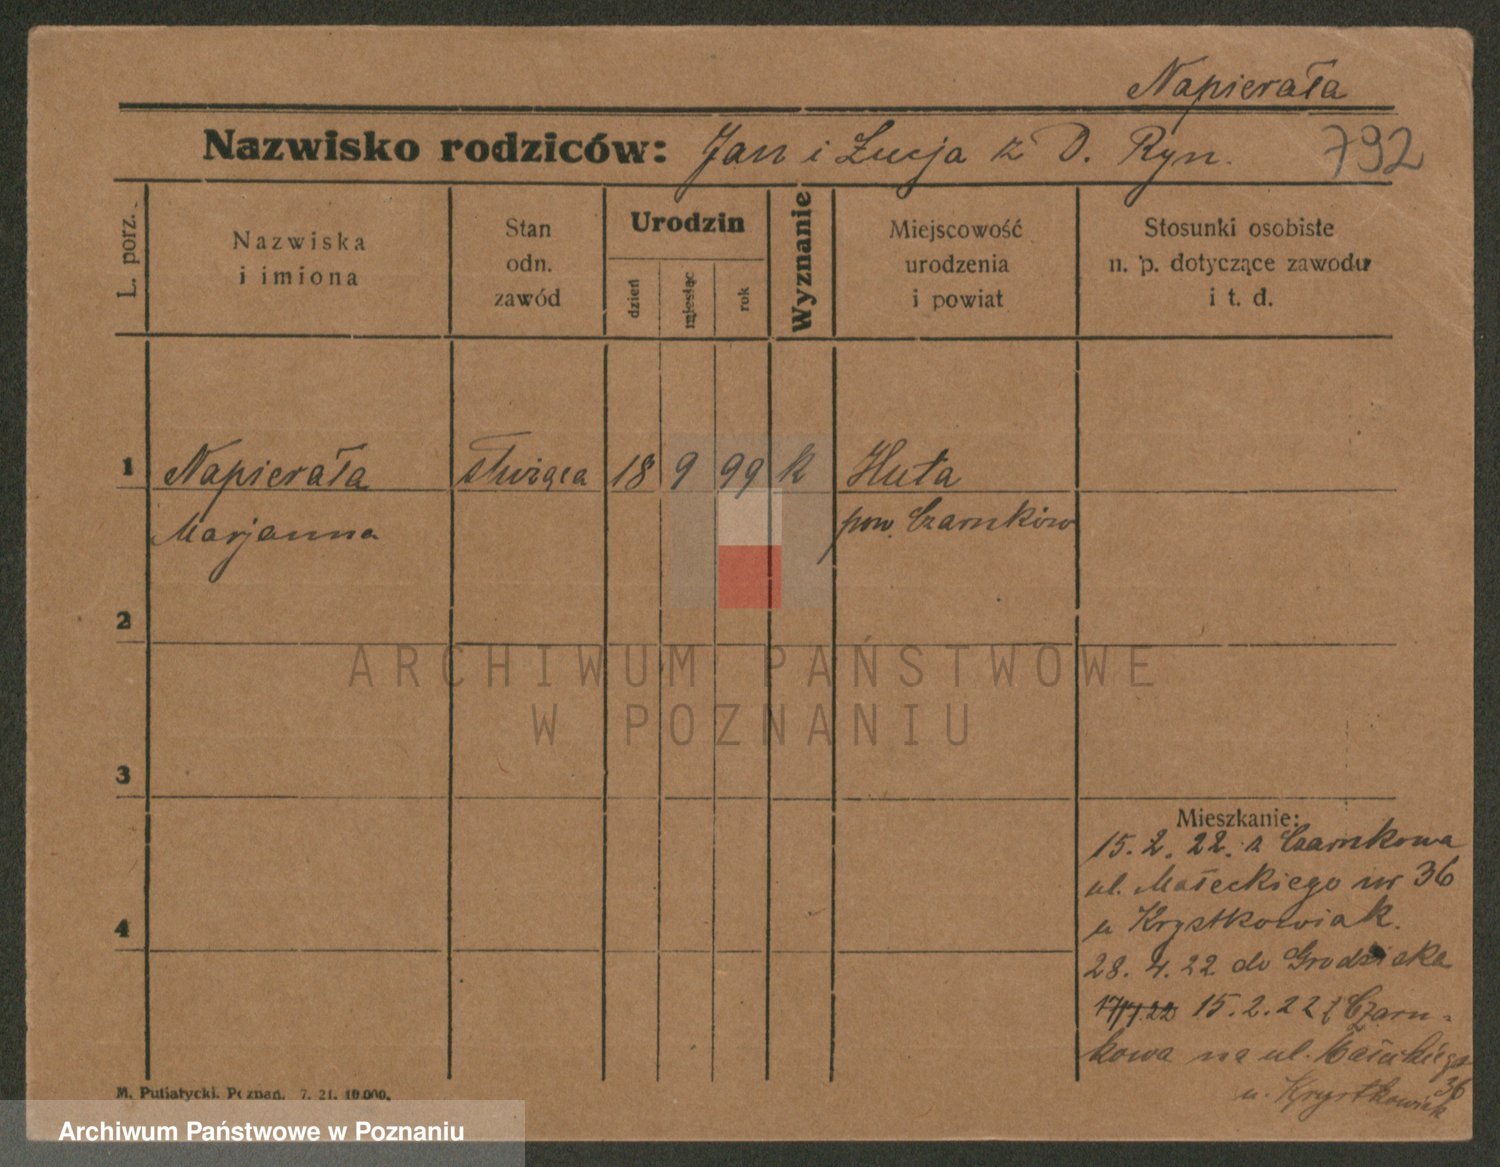 Napierała
Nazwisko rodziców: Jan i Łucja z D. Ryn.
792
L. porz.
Nazwiska
i imiona
Stan
odn.
zawód
Urodzin
dzień
miesiąc
rok
Wyznanie
Miejscowość
urodzenia
i powiat
Stosunki osobiste
n. p. dotyczące zawodu
i t. d.
1 Napierała służąca 18 9 99 k Huta
Marjanna pow. Czarnków
2
ARCHIWUM PAŃSTWOWE
W POZNANIU
3
Mieszkanie:
15. 2. 22. z Czarnkowa
ul. Małeckiego nr 36
u Krystkowiak.
4
28. 4. 22 do Grodziska
15. 2. 22 z Czarn-
kowa na ul. 
36
u. Krystkowiak
M. Putiatycki. Poznań. 7. 21. 10.000.
Archiwum Państwowe w Poznaniu